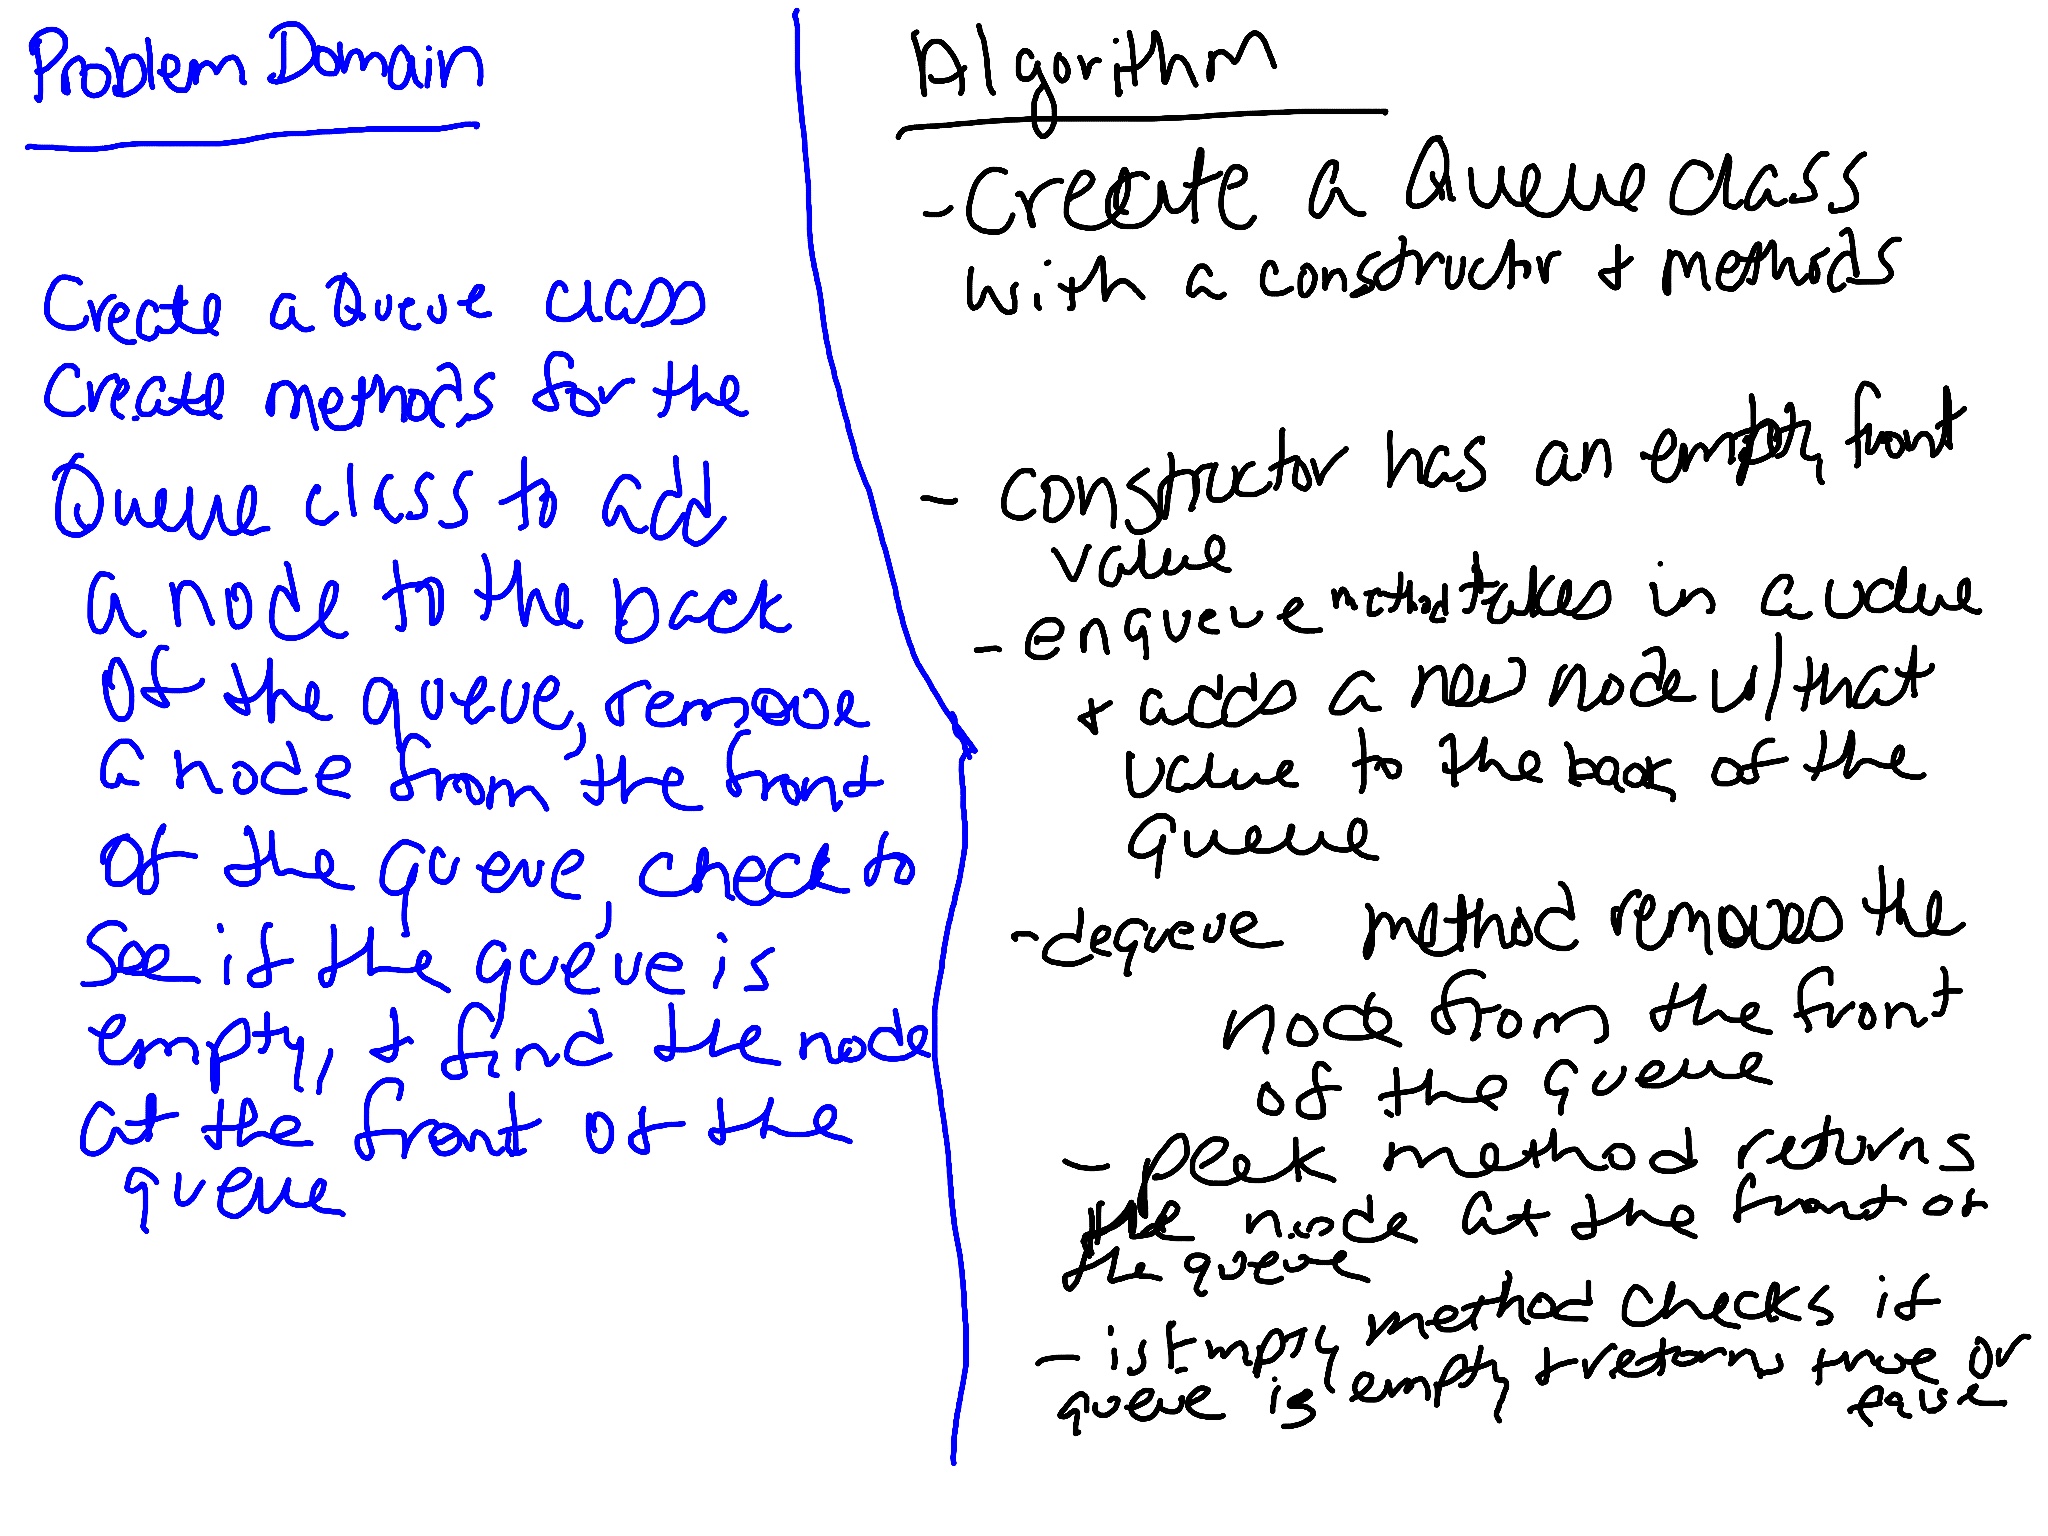 Problem Domain
Create a Queue class
Create methods for the
Queue class to add
a node to the back
of the queue, remove
a node from the front
of the queue, check to
see if the queue is
empty, + find the node
at the front of the
queue
Algorithm
- Create a Queue class
with a constructor + methods
- constructor has an empty front
value
- enqueue method takes in a value
+ adds a new node w/ that
value to the back of the
queue
- dequeue method removes the
node from the front
of the queue
- peek method returns
the node at the front of
the queue
- isEmpty method checks if
queue is empty + returns true or
false